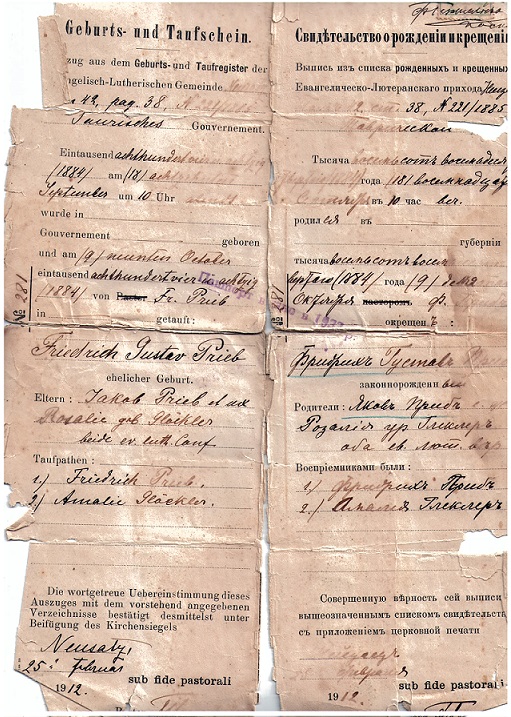 Geburts- und Taufschein.
zug aus dem Geburts- und Taufregister der
gelisch-Lutherischen Gemeinde
42, pag. 38,
Taurisches Gouvernement.
Eintausend achthundert
(1884) am (18)
September um 10 Uhr
wurde in
Gouvernement geboren
und am (9) neunten October
eintausend achthundert vier u. achtzig
(1884) von Pastor Fr. Prieb
in getauft:
№ 281
Friedrich Gustav Prieb
ehelicher Geburt.
Eltern: Jakob Prieb et ux
Rosalie geb Glöckler
beide ev. luth. Conf.
Taufpathen:
1) Friedrich Prieb.
2) Amalie Glöckler.
Die wortgetreue Uebereinstimmung dieses
Auszuges mit dem vorstehend angegebenen
Verzeichnisse bestätigt desmittelst unter
Beifügung des Kirchensiegels
Neusatz,
25 Februar
1912.
sub fide pastorali
Свидѣтельство о рожденіи и крещені
Выпись изъ списка рожденныхъ и крещенных
Евангелическо-Лютеранскаго прихода
38, № 221/1885
Таврической
Тысяча восемьсотъ восемьдеся
года (18) восемнадцат
въ 10 час веч.
родился въ
губерніи
тысяча восемьсотъ восем
(1884) года (9)
Октября пасторомъ Ф.
окрещенъ:
№ 281
Фридрихъ Густавъ
законнорожден
Родители: Яковъ Прибъ
Розалія ур Глеклеръ
оба ев. лют.
Воспріемниками были:
1) Фридрихъ Прибъ
2) Амалія Глеклеръ
Совершенную вѣрность сей выписи
вышеозначеннымъ спискомъ свидѣтельств
съ приложеніемъ церковной печати
Февраля
1912.
sub fide pastorali